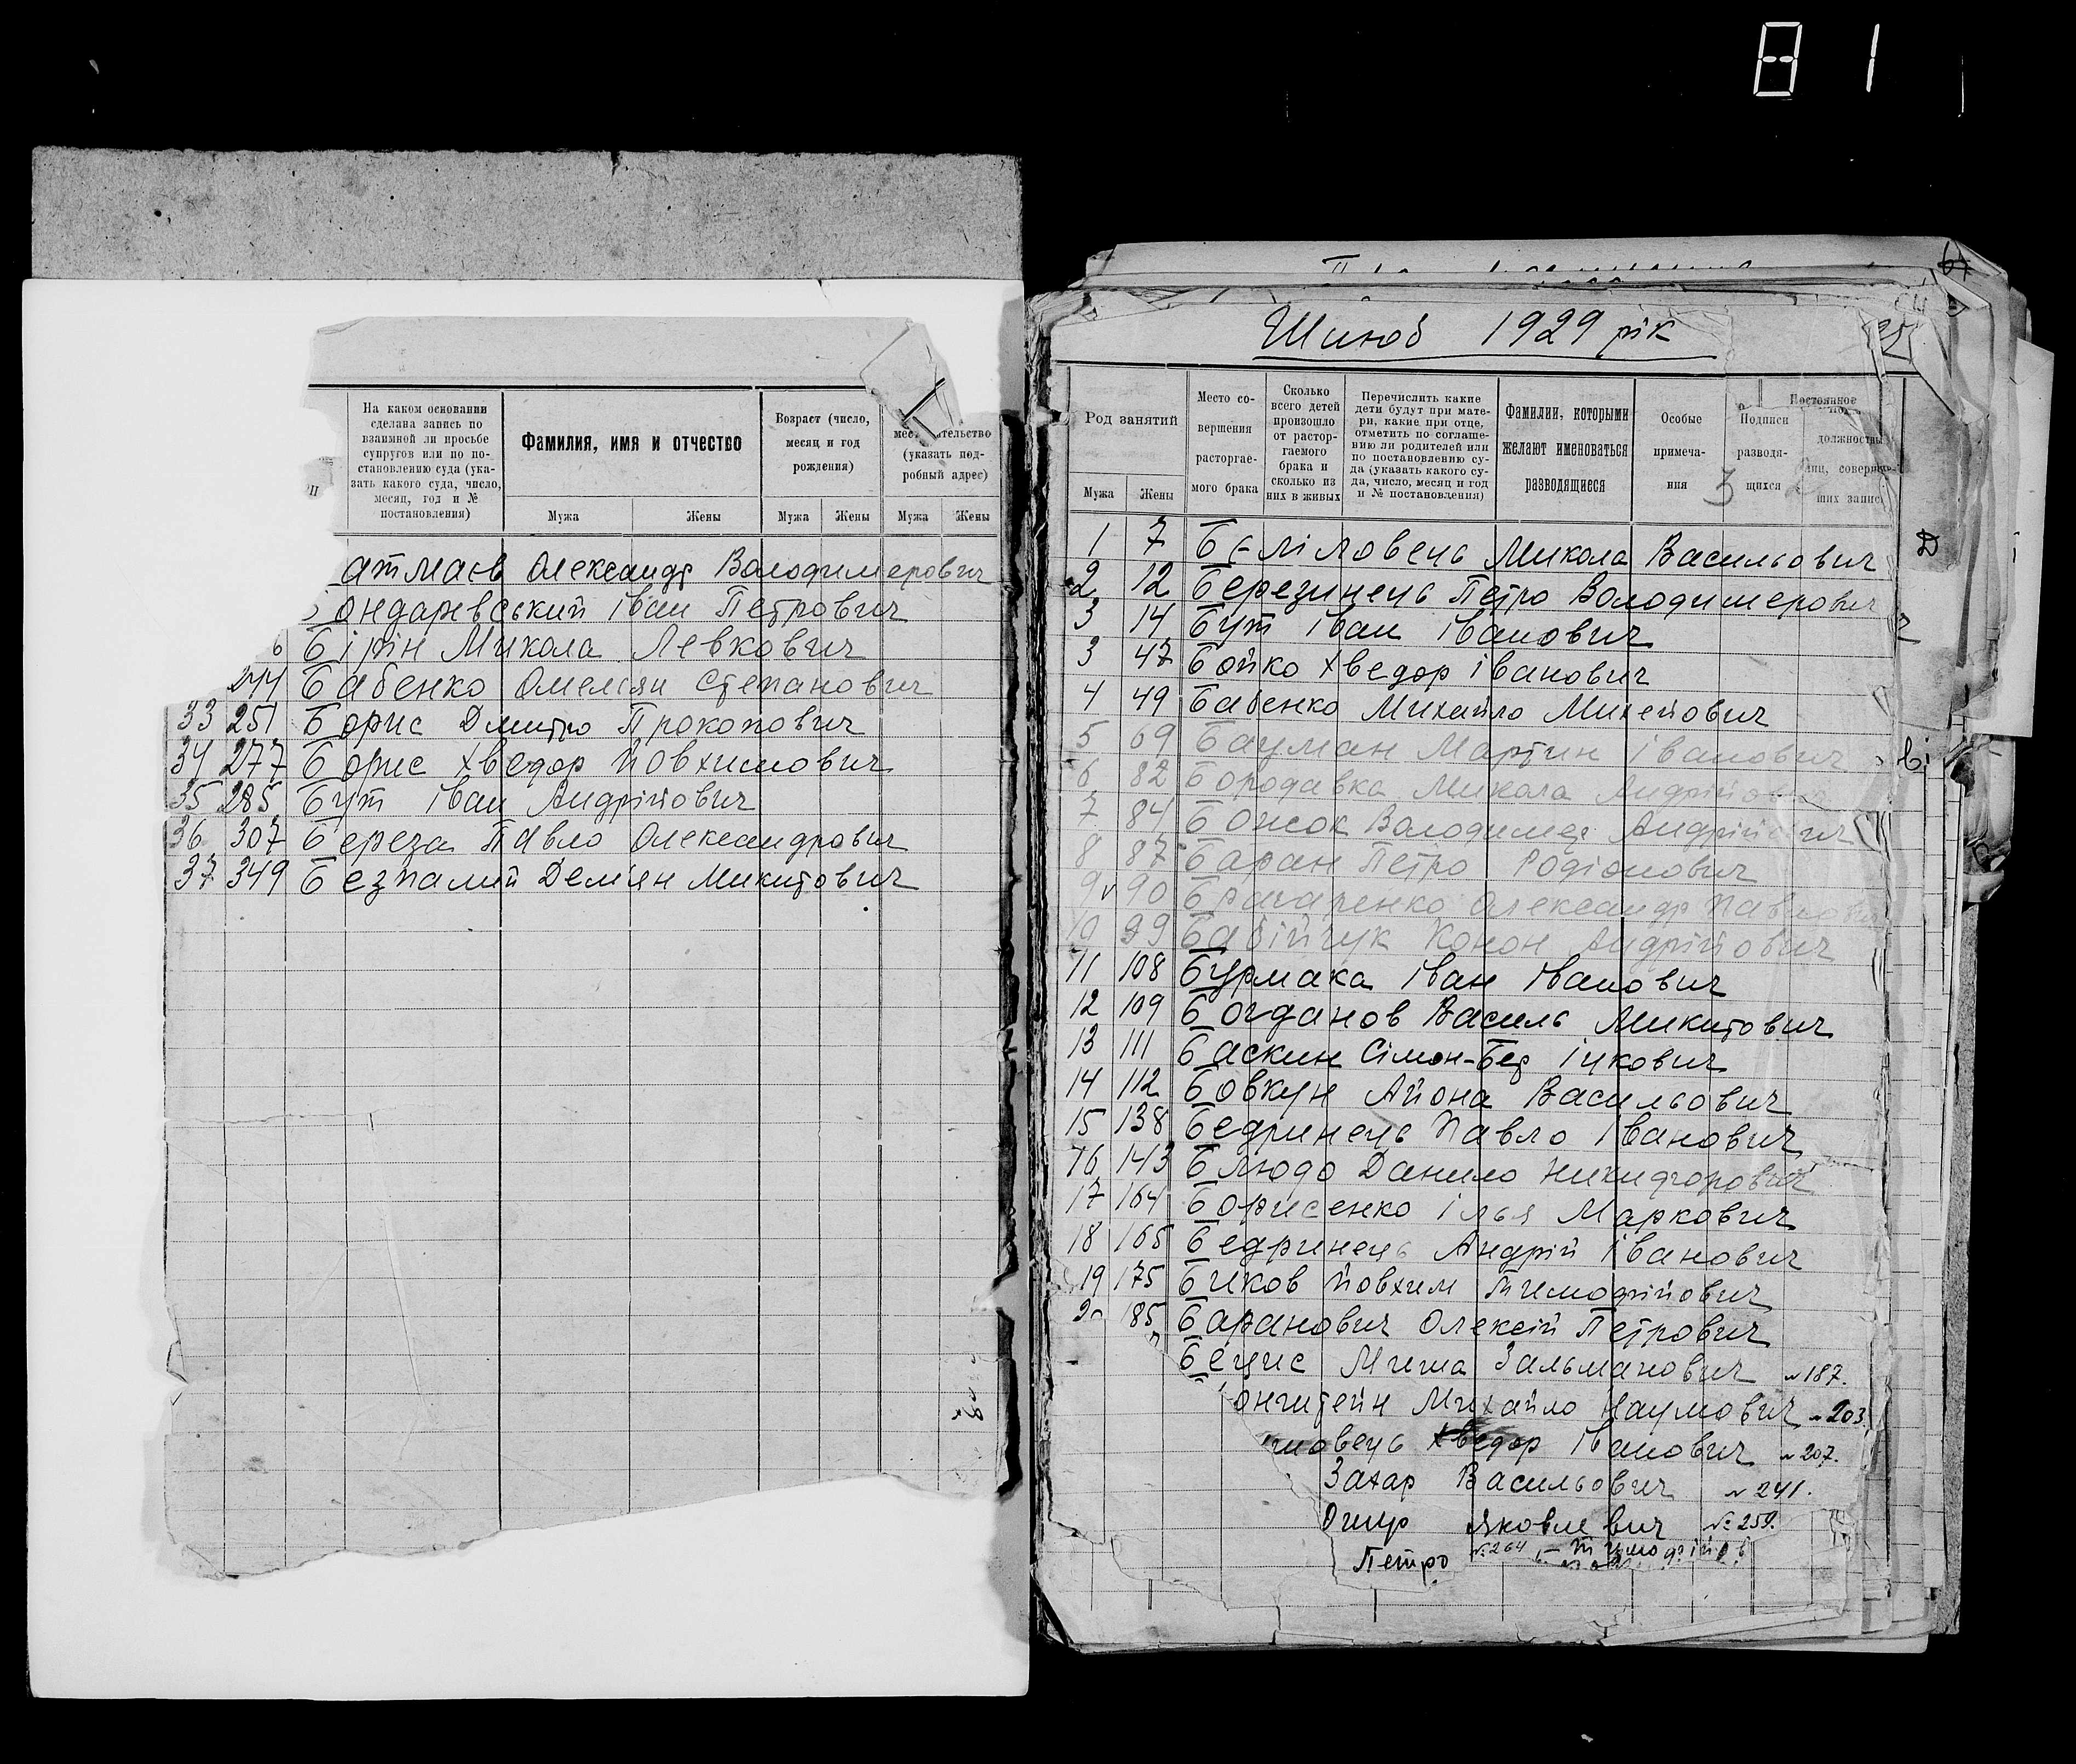 81
На каком основании
сделана запись по
взаимной ли просьбе
супругов или по по-
становлению суда (ука-
зать какого суда, число,
месяц, год и №
постановления)
Фамилия, имя и отчество
Мужа Жены
Возраст (число,
месяц и год
рождения)
Мужа Жены
(указать под-
робный адрес)
Мужа Жены
атмаєв Олександр Володимерович
Бондаревський Іван Петрович
6 Бірін Микола Левкович
244 Бабенко Омелян Степанович
33 251 Борис Дмитро Прокопович
34 277 Борис Хведор Йовхимович
35 285 Бут Іван Андрійович
36 307 Береза Павло Олександрович
37 349 Безпалий Демян Микитович
Шлюб 1929 рік
Род занятий
Мужа Жены
Место со-
вершения
расторгае-
мого брака
Сколько
всего детей
произошло
от растор-
гаемого
брака и
сколько из
них в живых
Перечислить какие
дети будут при мате-
ри, какие при отце,
отметить по соглаше-
нию ли родителей или
по постановлению су-
да (указать какого су-
да, число, месяц и год
и № постановления)
Фамилии, которыми
желают именоваться
разводящиеся
Особые
примеча-
ния
3
Подписи
разводя-
щихся
Постоянное
должностн
1 7 Бєліловець Микола Васильович
2 12 Березинець Петро Володимерович
3 14 Бут Іван Іванович
3 47 Бойко Хведор Іванович
4 49 Бабенко Михайло Михейович
5 69 Бауман Мартин Іванович
6 82 Бородавка Микола
7 84 Божок Володимер
8 87 Баран Петро Родіонович
9 90 Олександр Павлович
10 99 Бабійчук Конон Андрійович
11 108 Бурмака Іван Іванович
12 109 Богданов Василь Микитович
13 111 Баскин Сімон-Бер Іцкович
14 112 Бовкун Айона Васильович
15 138 Бедринець Павло Іванович
16 143 Блюдо Данило Никифорович
17 164 Борисенко Ілья Маркович
18 165 Бедринець Андрій Іванович
19 175 Биков Йовхим Тимофійович
185 Баранович Олексій Петрович
Миша Зальманович №187.
онштейн Михайло Наумович №203.
Хведор Іванович №207.
Захар Васильович №241.
Яковлевич №259.
Петро №264